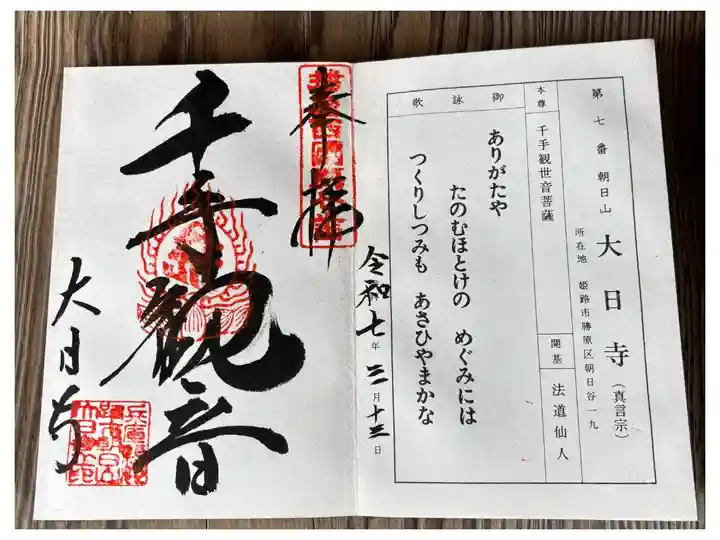 第七番 朝日山 大日寺（真言宗）
所在地 姫路市勝原区朝日谷一九
本尊 千手観世音菩薩
開基 法道仙人
御詠歌
ありがたや
たのむほとけの めぐみには
つくりしつみも あさひやまかな
奉拝
令和七年三月十三日
千手観音
大日寺